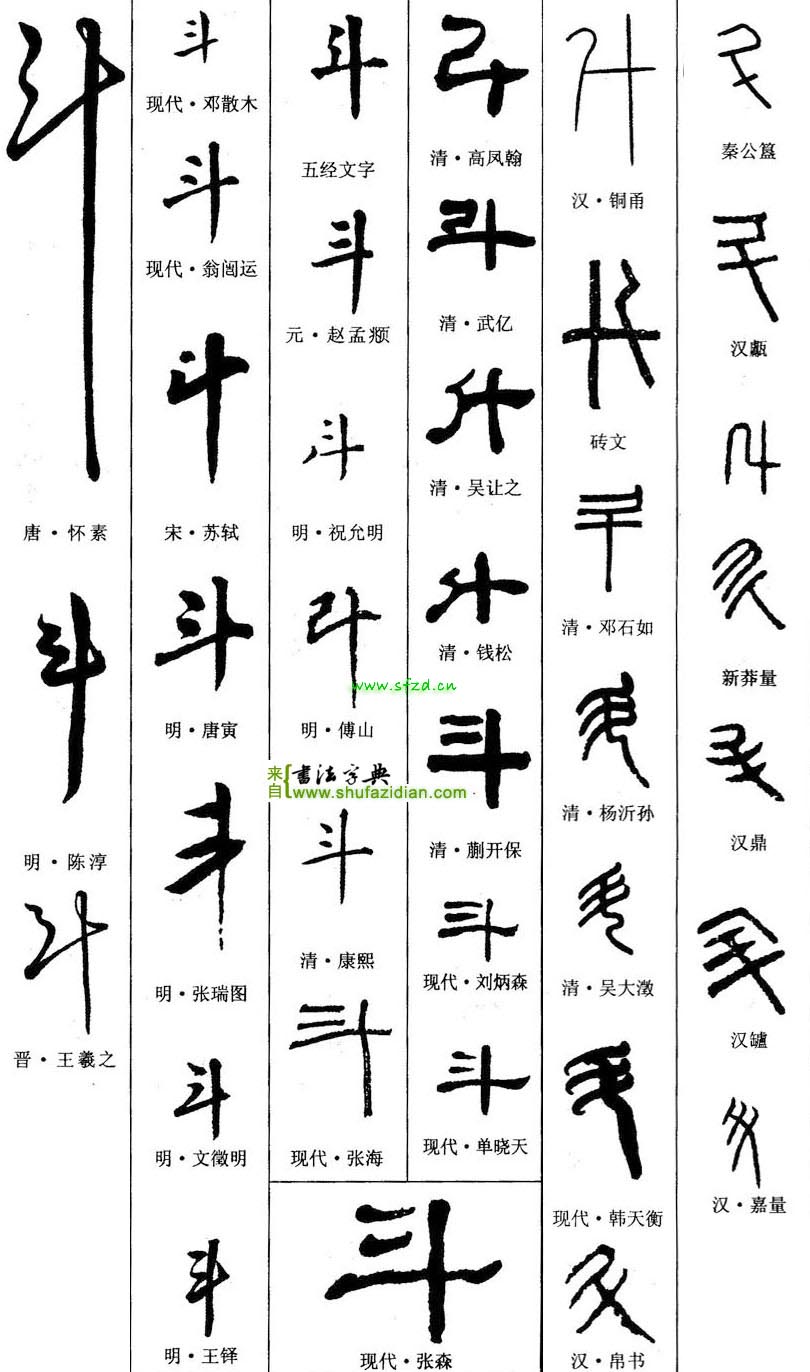 斗
唐·怀素
斗
明·陈淳
斗
晋·王羲之
斗
现代·邓散木
斗
现代·翁闿运
斗
宋·苏轼
斗
明·唐寅
斗
明·张瑞图
斗
明·文徵明
斗
明·王铎
斗
五经文字
斗
元·赵孟頫
斗
明·祝允明
斗
明·傅山
www.sfzd.cn
来自{书法字典
www.shufazidian.com
斗
清·康熙
斗
现代·张海
斗
清·高凤翰
斗
清·武亿
斗
清·吴让之
斗
清·钱松
斗
清·蒯开保
斗
现代·刘炳森
斗
现代·单晓天
斗
现代·张森
斗
汉·铜甬
斗
砖文
斗
清·邓石如
斗
清·杨沂孙
斗
清·吴大澂
斗
现代·韩天衡
斗
汉·帛书
斗
秦公簋
斗
汉甗
斗
斗
新莽量
斗
汉鼎
斗
汉罏
斗
汉·嘉量